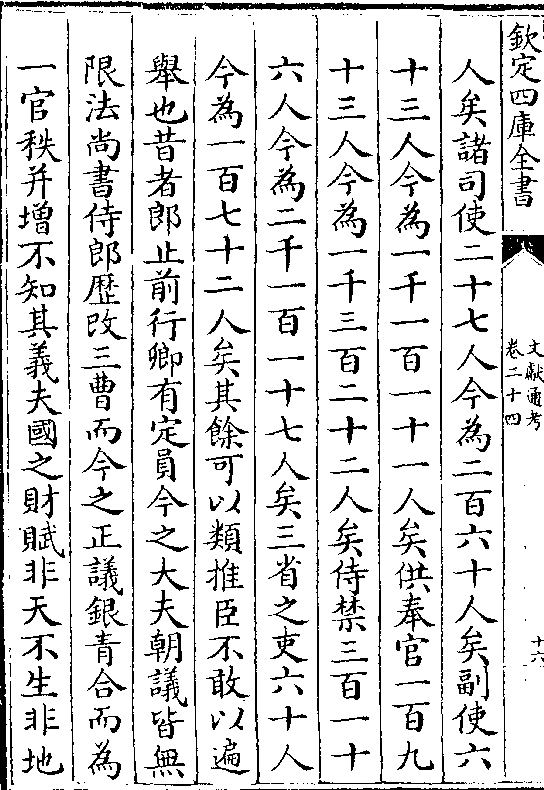 欽定四庫全書
文獻通考
卷二十四
十六
人矣諸司使二十七人今為二百六十人矣副使六
十三人今為一千一百一十一人矣供奉官一百九
十三人今為一千三百二十二人矣侍禁三百一十
六人今為二千一百一十七人矣三省之吏六十人
今為一百七十二人矣其餘可以類推臣不敢以遍
舉也昔者郎止前行卿有定員今之大夫朝議皆無
限法尚書侍郎歴改三曹而今之正議銀青合而為
一官秩并增不知其義夫國之財賦非天不生非地